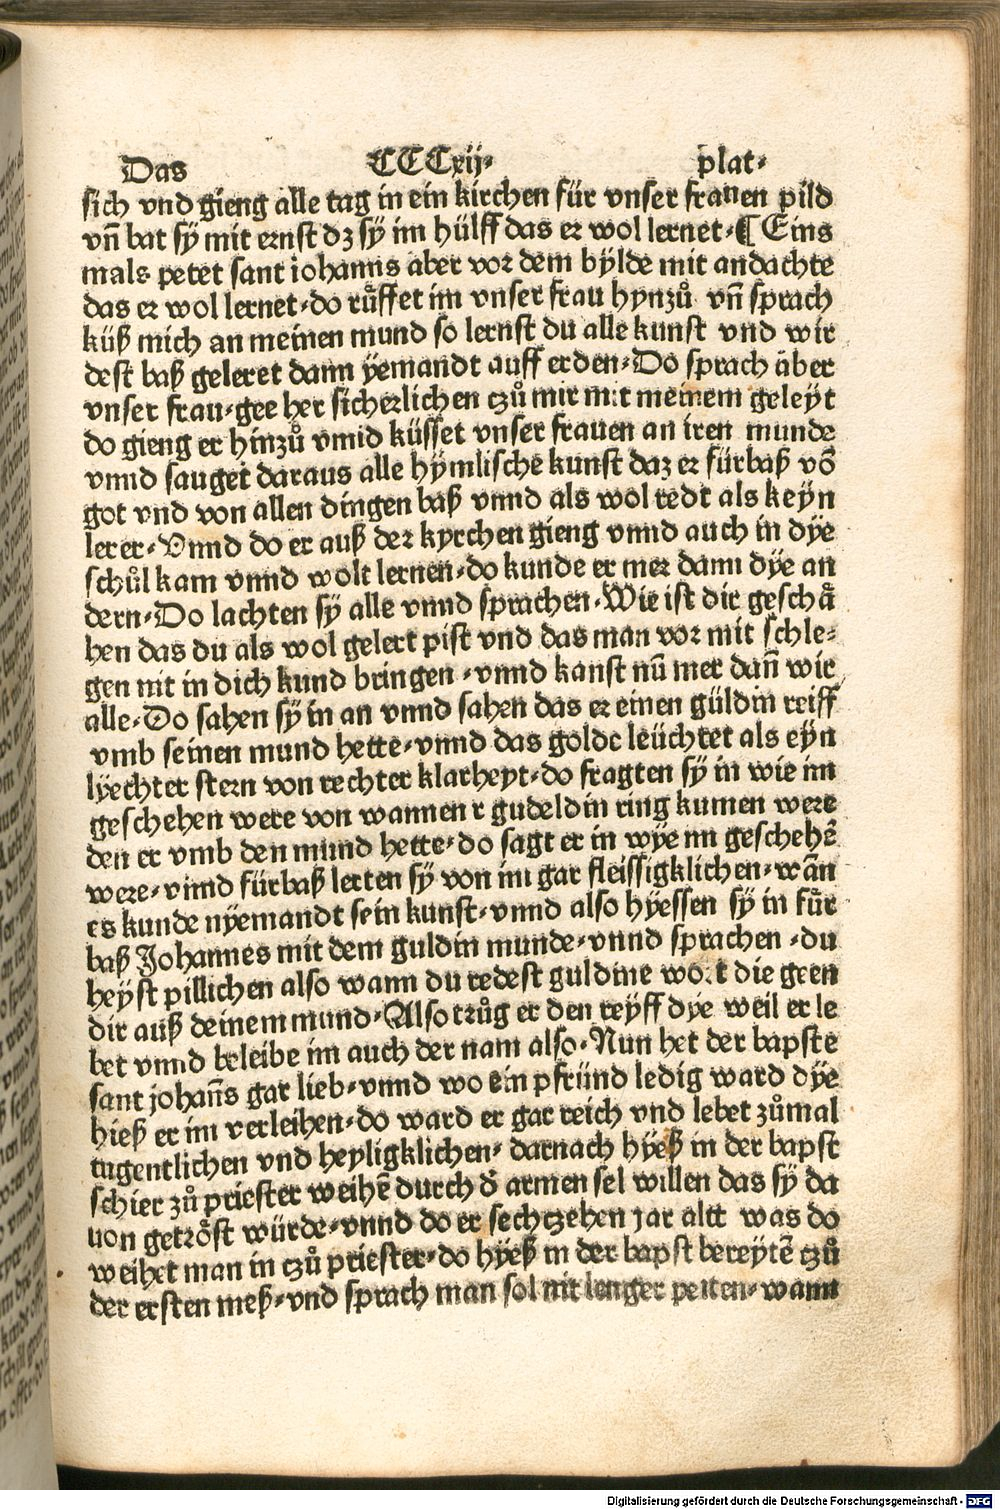 Das CCCxij· plat·
sich vnd gieng alle tag in ein kirchen für vnser frauen pild
vn̄ bat sÿ mit ernst dz sÿ im hülff das er wol lernet·¶ Eins
mals petet sant iohanns aber vor dem bÿlde mit andachte
das er wol lernet·do růffet im vnser frau hynzů vn̄ sprach
küß mich an meinen mund so lernst du alle kunst vnd wir
dest baß geleret dann ÿemandt auff erden·Do sprach aber
vnser frau·gee her sicherlichen czů mir mit meinem geleÿt
do gieng er hinzů vnnd küsset vnser frauen an iren munde
vnnd sauget daraus alle hÿmlische kunst daz er fürbaß vō
got vnd von allen dingen baß vnnd als wol redt als keÿn
lerer·Vnnd do er auß der kyrchen gieng vnnd auch in dÿe
schůl kam vnnd wolt lernen·do kunde er mer dann dÿe an
dern·Do lachten sÿ alle vnnd sprachen·Wie ist dir geschä
hen das du als wol gelert pist vnd das man vor mit schle⸗
gen nit in dich kund bringen ·vnnd kanst nū mer dan̄ wir
alle·Do sahen sÿ in an vnnd sahen das er einen güldin reiff
vmb seinen mund hette·vnnd das golde leüchtet als eÿn
lÿechter stern von rechter klarheyt·do fragten sÿ in wie im
geschehen were von wannen r gudeldin ring kumen were
den er vmb den mund hette·do sagt er in wÿe im geschehē
were·vnnd fürbaß lerten sÿ von im gar fleissigklichen·wān
es kunde nÿemandt sein kunst·vnnd also hÿessen sÿ in für
baß Johannes mit dem guldin munde·vnnd sprachen ·du
heÿst pillichen also wann du redest guldine wort die geen
dir auß deinem mund·Also trůg er den reÿff dÿe weil er le
bet vnnd beleibe im auch der nam also·Nun het der bapste
sant johan̄s gar lieb·vnnd wo ein pfründ ledig ward dÿe
hieß er im verleihen·do ward er gar reich vnd lebet zůmal
tugentlichen vnd heyligklichen· darnach hÿeß in der bapst
schier zů priester weihē durch d̄ armen sel willen das sÿ da
uon getröst würde·vnnd do er sechczehen jar altt was do
weihet man in czů priester·do hÿeß in der bapst bereÿtē czů
der ersten meß·vnd sprach man sol nit lenger peiten·wann
Digitalisierung gefördert durch die Deutsche Forschungsgemeinschaft - DFG